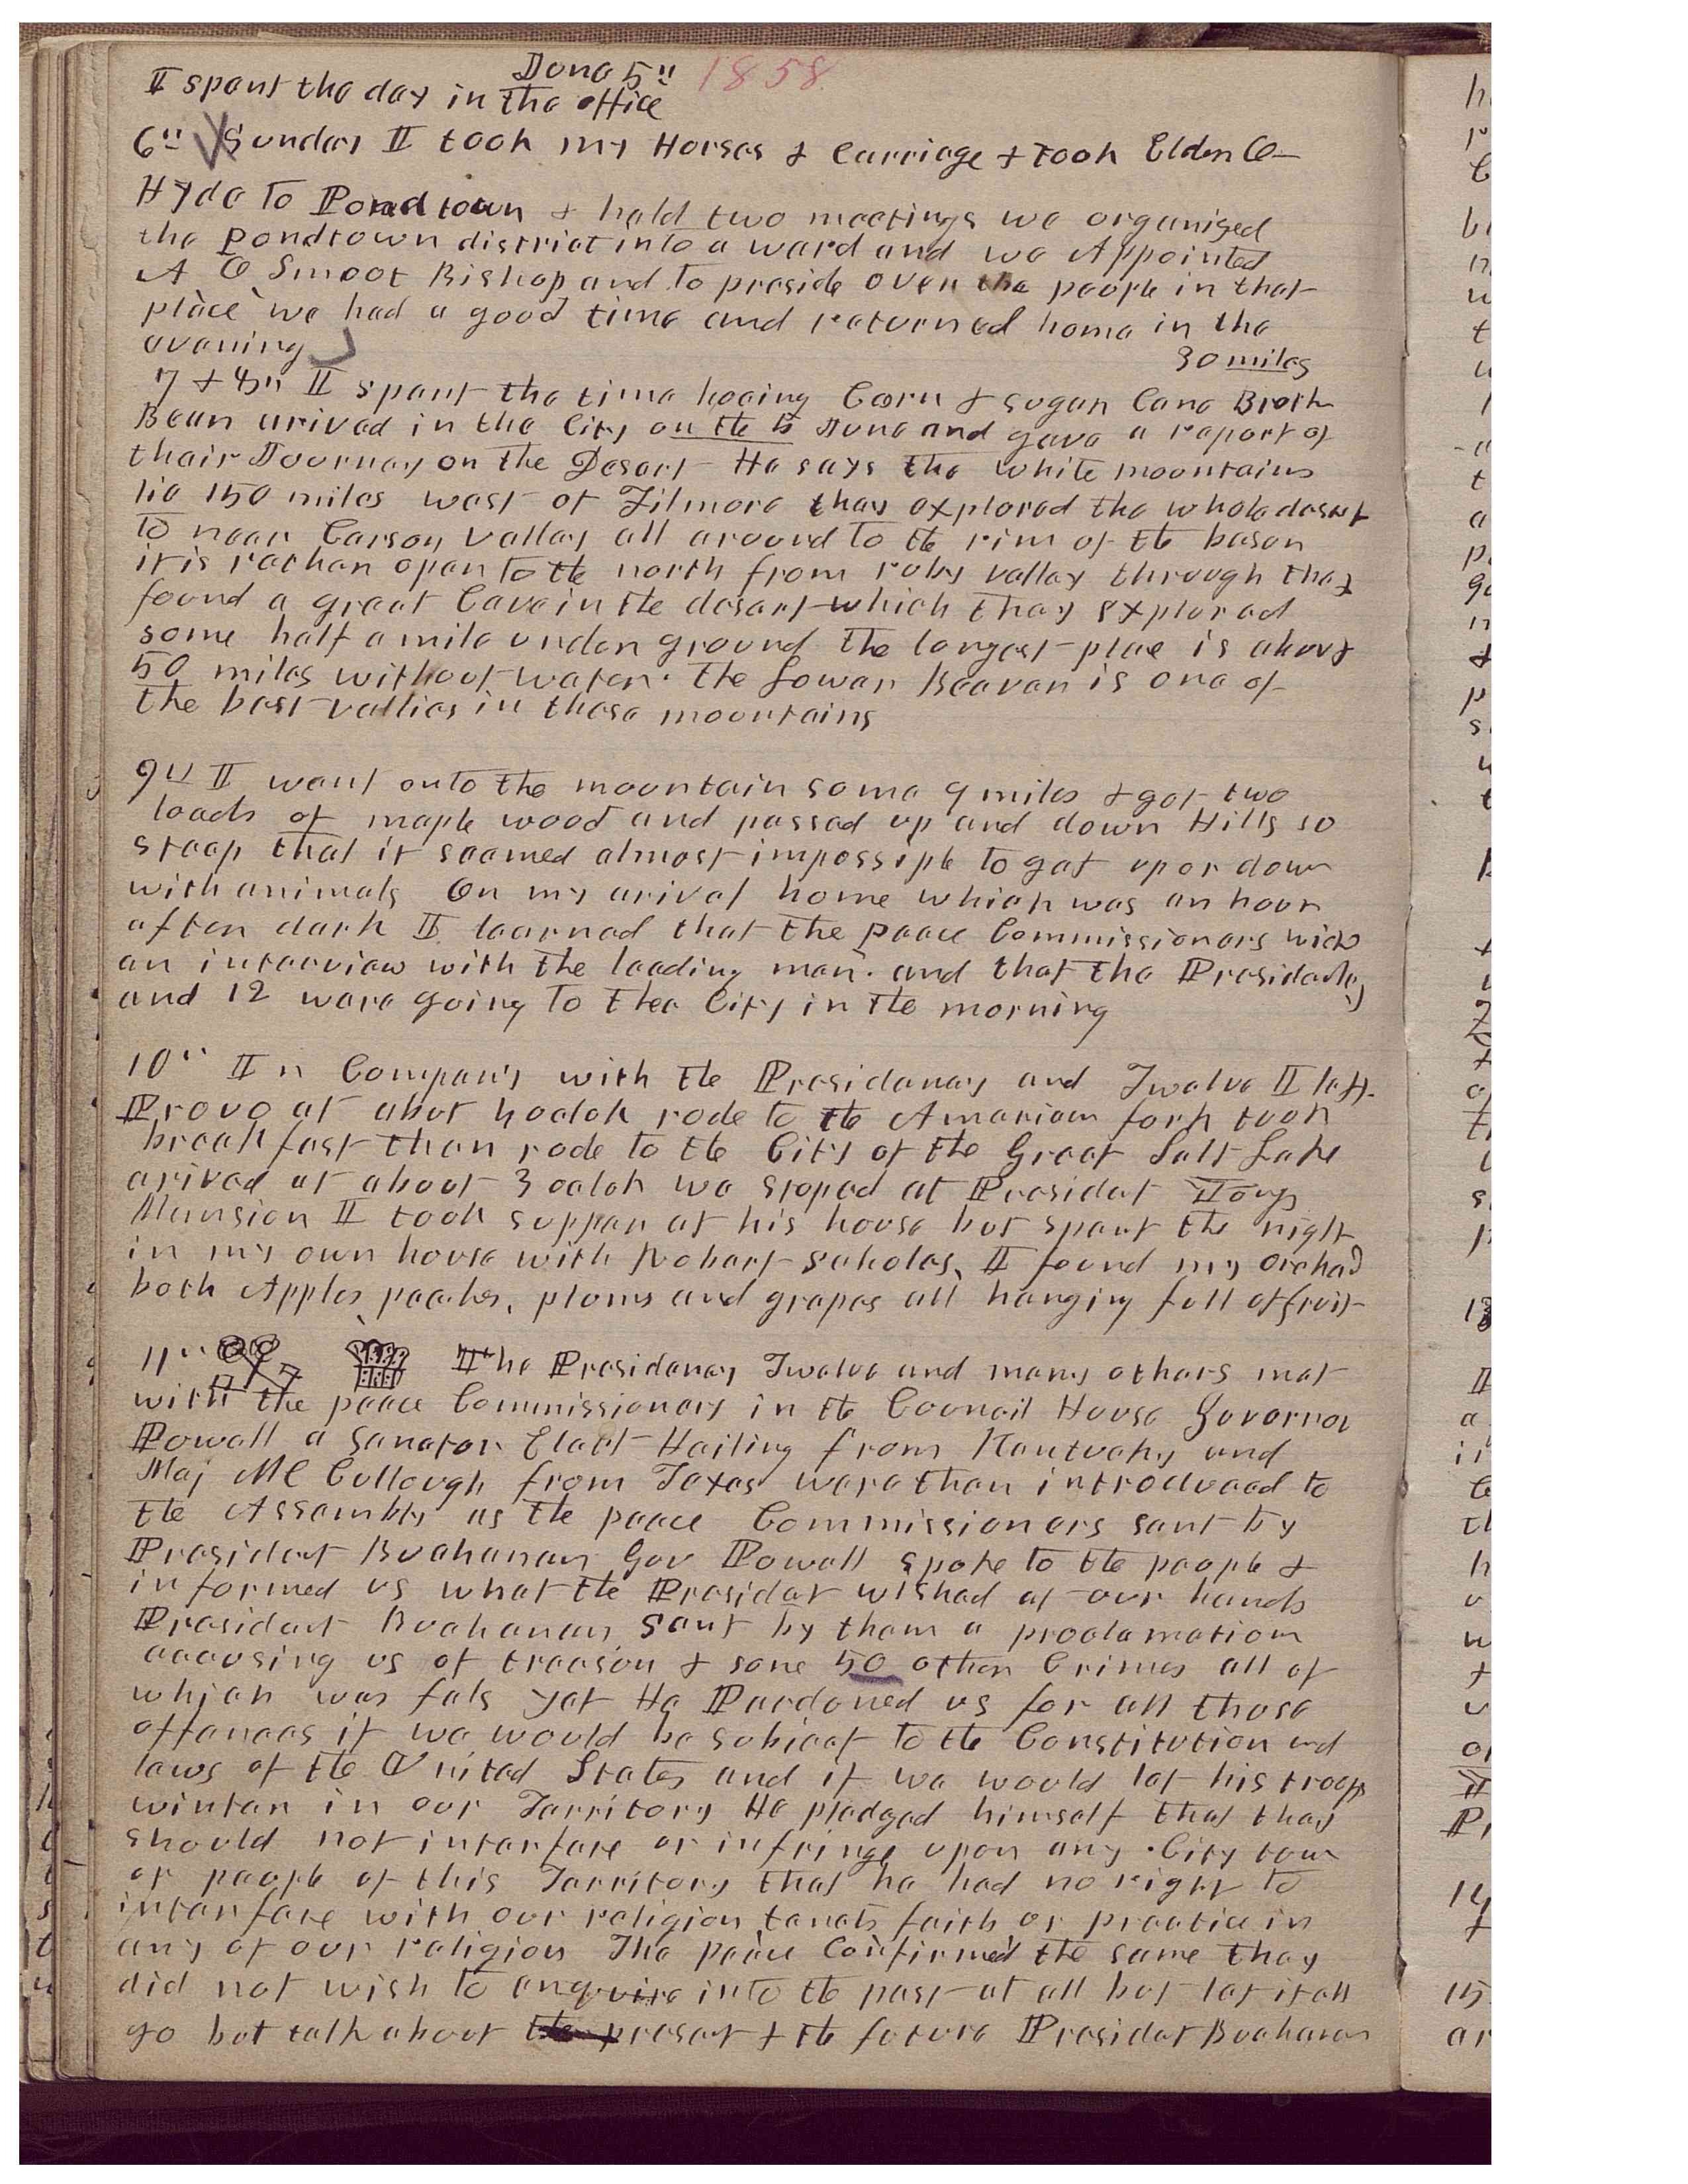 June 5" 1858.
I spent the day in the office
6" Sunday I took my Horses & Carriage & took Elder O
Hyde to Pondtown & held two meetings we organized
the pondtown district into a ward and we Appointed
A O Smoot Bishop and to preside over the people in that
place we had a good time and returned home in the
evening
30 miles
7 & 8" I spent the time hoeing Corn & sugar Cane Broth
Bean arived in the City on the 5 June and gave a report of
their Journey on the Desert He says the white mountains
lie 150 miles west of Filmore they explored the whole desert
to near Carson Valley all around to the rim of the bason
it is rather open to the north from ruby valley through they
found a great Cave in the desert which they explored
some half a mile under ground the longest place is about
50 miles without water. The Lower Beaver is one of
the best vallies in those mountains
9" I went onto the mountain some 9 miles & got two
loads of maple wood and passed up and down Hills so
steep that it seemed almost impossiple to get up or down
with animals On my arival home which was an hour
after dark I learned that the peace Commissioners wish
an interview with the leading men. and that the Presidency
and 12 were going to the City in the morning
10" In Company with the Presidency and Twelve I left
Provo at about 4 oclok rode to the American fork took
breakfast then rode to the City of the Great Salt Lake
arived at about 3 oclok we stoped at President Youngs
Mansion I took supper at his house but spent the night
in my own house with Robert scholes, I found my orchad
both Apples peaches, plums and grapes all hanging full of fruit
11" The Presidency Twelve and many others met
with the peace Commissioners in the Council House Governor
Powell a Senator Elect Hailing from Kentucky and
Maj McCullough from Texas were then introduced to
the Assembly as the peace Commissioners sent by
President Buchanan Gov Powell spoke to the people &
informed us what the Presidet wished at our hands
President Buchanan sent by them a proclamation
accusing us of treason & some 50 other Crimes all of
which was fals yet He Pardoned us for all those
offences if we would be subject to the Constitution and
laws of the United States and if we would let his troops
winter in our Territory He pledged himself that they
should not interfere or infringe upon any City town
or people of this Territory that he had no right to
interfere with our religion tenets faith or practice in
any of our religion The peace Confirmed the same they
did not wish to enquire into the past at all but let it all
go but talk about the present & the future Presidet Buchanan